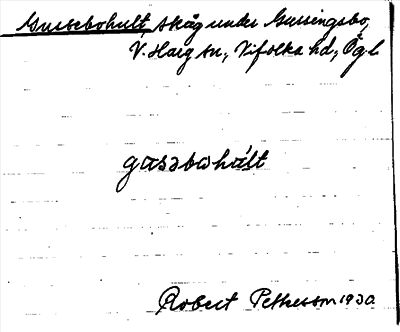 Gussebohult, skog under Gussingsbo,
V. Harg sn, Vifolka hd, Ögl
gasəbohúlt
Robert Petterson 1930